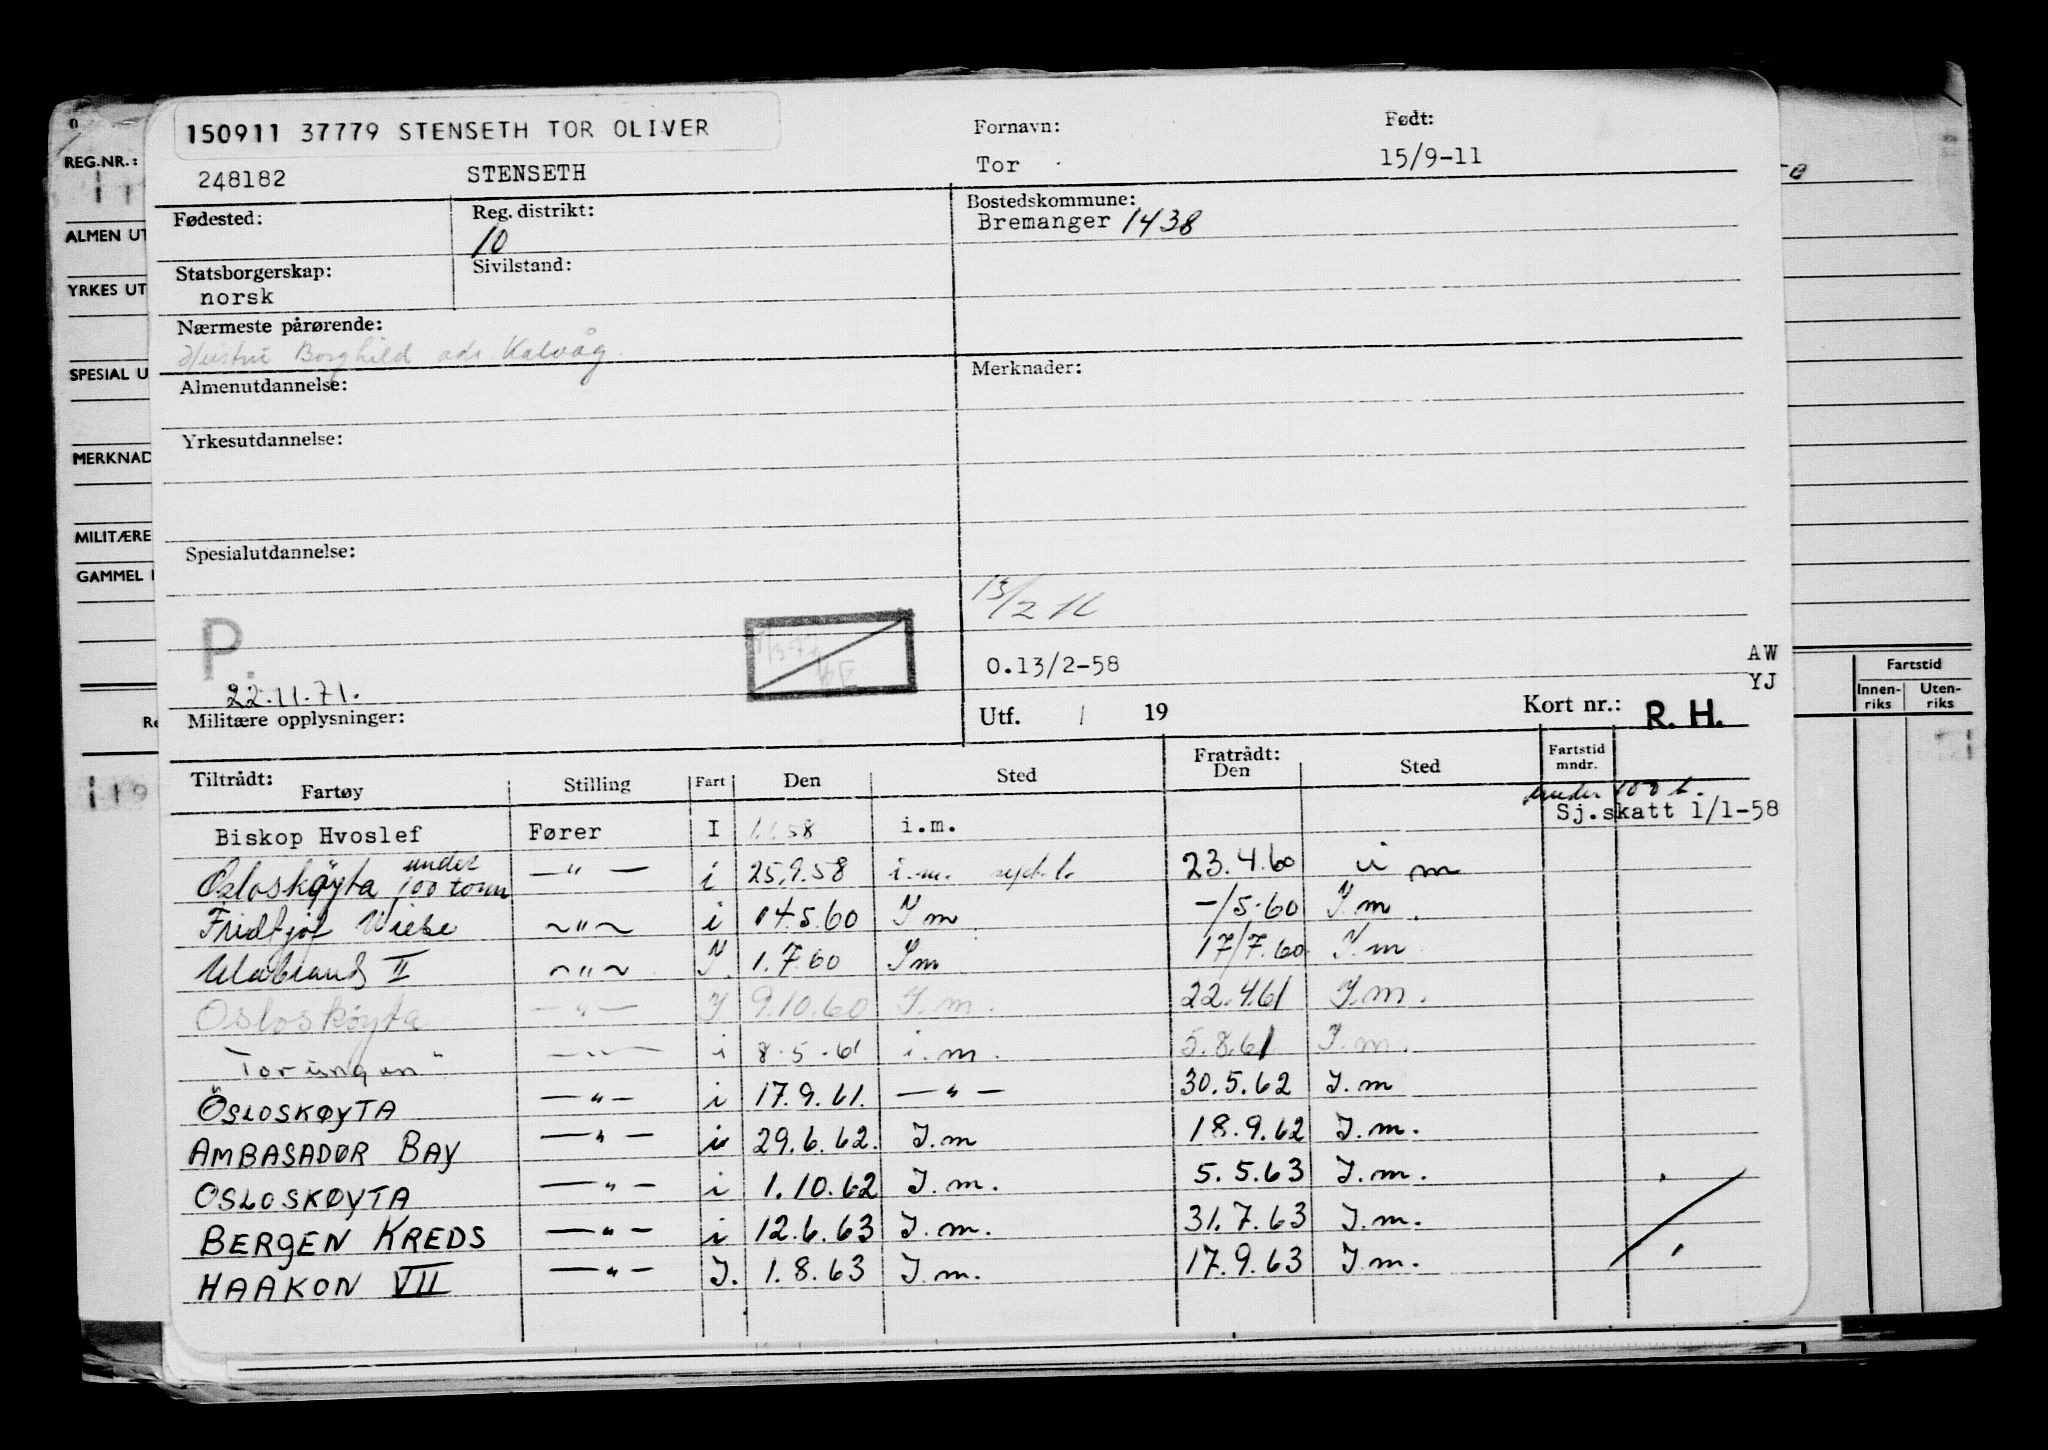 150911 37779 STENSETH TOR OLIVER
Fornavn: Født:
248182 STENSETH Tor 15/9-11
REG.NR.:
Fødested: Reg. distrikt: Bostedskommune:
10 Bremanger 1438
ALMEN UT
Statsborgerskap: Sivilstand:
norsk
YRKES UT
Nærmeste pårørende:
Hustru Borghild adr. Kalvåg.
SPESIAL U
Almenutdannelse: Merknader:
Yrkesutdannelse:
MERKNAD
MILITÆRE
Spesialutdannelse:
GAMMEL
13/2
P.
O.13/2-58 AW
YJ
22.11.71.
Militære opplysninger: Utf. / 19 Kort nr.: R. H.
Fartstid
Innen-riks Uten-riks
Re
Tiltrådt: Fratrådt: Fartstid mndr.
Fartøy Stilling Fart Den Sted Den Sted
under 100 t.
Sj.skatt 1/1-58
Biskop Hvoslef Fører I 1.1.58 i.m.
Osloskøyta under 100 tonn —"— i 25.9.58 i.m. 23.4.60 i m
Fridtjof Wiese ~"~ i 14.5.60 I m -/5.60 I.m.
Ulabrand II ~"~ I. 1.7.60 I m 17/7.60 I.m
Osloskøyta —"— I 9.10.60 I.m. 22.4.61 I.m.
"Torungen" —"— i 8.5.61 i.m. 5.8.61 I.m.
OSLOSKØYTA —"— i 17.9.61. —"— 30.5.62 I.m
AMBASADØR BAY —"— i 29.6.62. I.m 18.9.62 I.m.
OSLOSKØYTA —"— i 1.10.62 I.m. 5.5.63 I.m.
BERGEN KREDS —"— i 12.6.63 I.m. 31.7.63 I.m.
HAAKON VII —"— I. 1.8.63 I.m. 17.9.63 I.m.